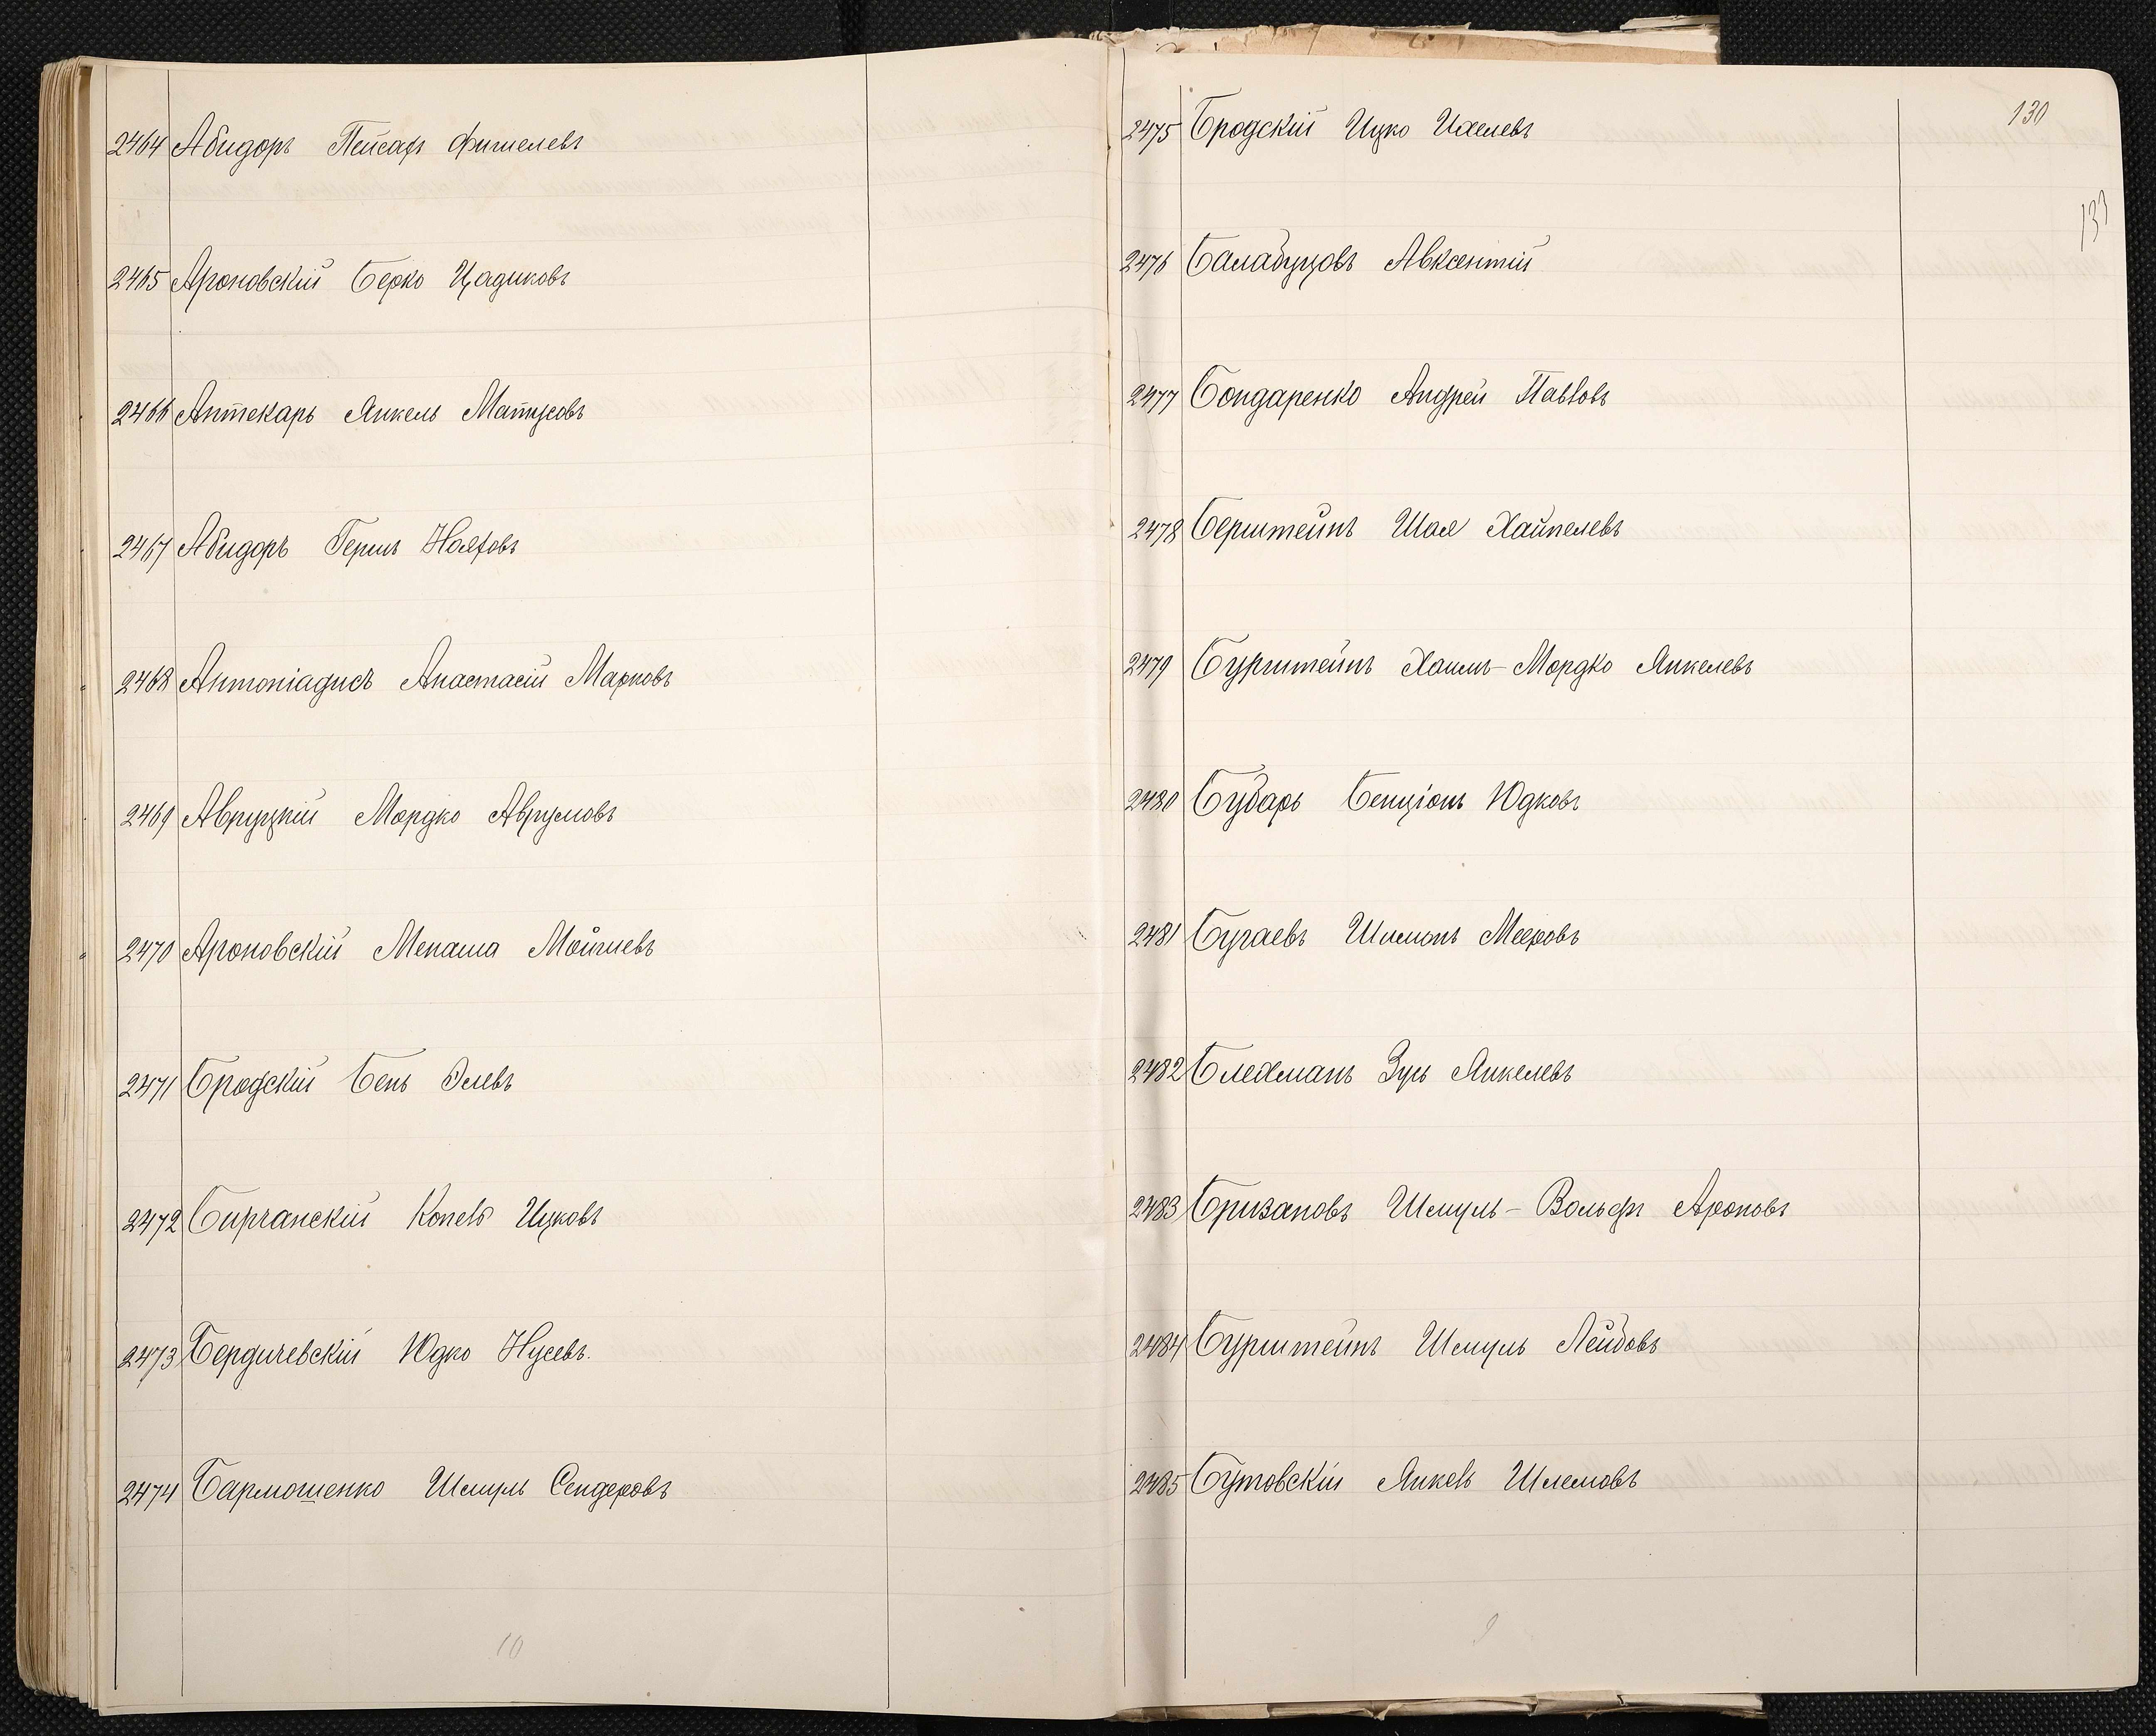 2464 Абидоръ Пейсахъ Фишелевъ
2465 Ароновскій Берко Цадиковъ
2466 Аптекарь Янкель Матусовъ
2467 Абидоръ Гершъ Нояховъ
2468 Антоніадисъ Анастасій Марковъ
2469 Авруцкій Мордко Аврумовъ
2470 Ароновскій Менаша Мойшевъ
2471 Бродскій Бень Элевъ
2472 Бирчанскій Копель Ицковъ
2473 Бердичевскій Юдко Нусевъ.
2474 Бармошенко Шмуль Сендеровъ
10
130
133
2475 Бродскій Ицко Ихелевъ
2476 Балабуцовъ Авксентій
2477 Бондаренко Андрей Павловъ
2478 Берштейнъ Шая Хайкелевъ
2479 Бурштейнъ Хаимъ-Мордко Янкелевъ
2480 Бубарь Бенціонъ Юдковъ
2481 Бугаевъ Шимонъ Мееровъ
2482 Блехманъ Зусь Янкелевъ
2483 Бризановъ Шмуль-Вольфъ Ароновъ
2484 Бурштейнъ Шмуль Лейбовъ
2485 Бутовскій Янкель Шлемовъ